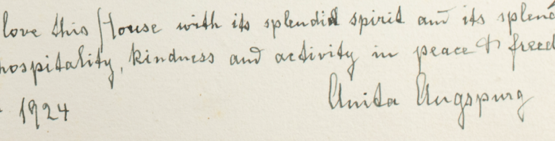 love this House with its splendid spirit and its splend
hospitality, kindness and activity in peace & freed
1924
Anita Augspurg